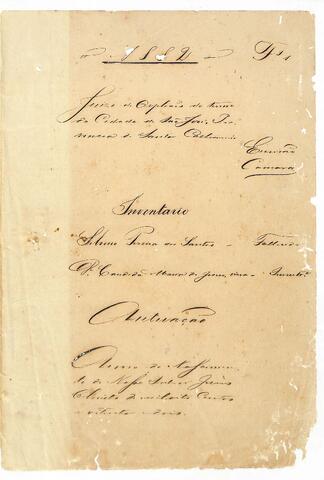 1882 Fs 1
Juizo de Orphãos do termo
da Cidade de São José, Pro
vincia de Santa Catharina
Escrivão
Camara
Inventario
Pereira dos Santos - Fallecido
D. Candida Maria de Jesus, viuva - Invente
Autuação
Anno do Nascimen
to de Nosso Senhor Jesus
Christo de mil oito centos
e oitenta e dois